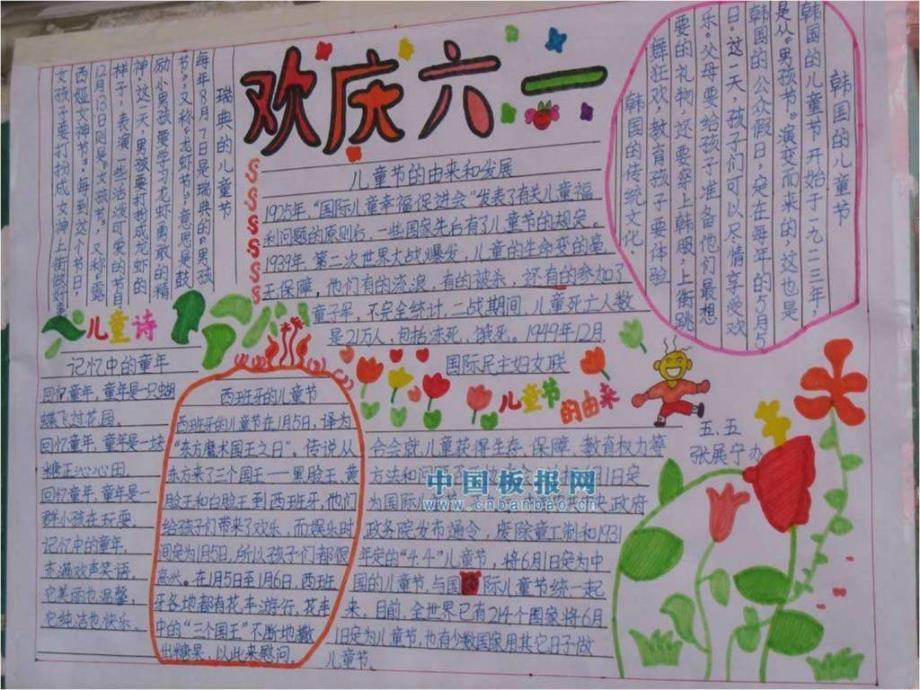 欢庆六一
瑞典的儿童节
每年8月7日是瑞典的“男孩
节”,又称“龙虾节”,意思是鼓
励小男孩要学习龙虾勇敢的精
神,这一天,男孩要打扮成龙虾的
样子,表演一些活泼可爱的节目
12月13日则是“女孩节”,又称“露
西娅女神节”,每到这个节日,
女孩子要打扮成女神上街做好事
儿童节的由来和发展
1925年,“国际儿童幸福促进会”发表了有关儿童福
利问题的原则后,一些国家先后有了儿童节的规定。
1939年,第二次世界大战爆发,儿童的生命变的毫
无保障,他们有的流浪,有的被杀,还有的参加了
童子军,不完全统计,二战期间,儿童死亡人数
是21万人,包括冻死、饿死。1949年12月
国际民主妇女联
韩国的儿童节
韩国的儿童节开始于一九二三年,
是从“男孩节”演变而来的,这也是
韩国的公众假日,定在每年的5月5
日。这一天,孩子们可以尽情享受欢
乐。父母要给孩子准备他们最想
要的礼物,还要穿上韩服,上街跳
舞狂欢,教育孩子要体验
韩国的传统文化.
儿童诗
记忆中的童年
回忆童年,童年是一只蝴
蝶飞过花园。
回忆童年,童年是一块
糖正沁心田
回忆童年,童年是一
群小孩在玩耍。
记忆中的童年,
充满欢声笑语。
它美丽也温馨,
它纯洁也快乐.
西班牙的儿童节
西班牙的儿童节在1月5日,译为
“东方魔术国王之日”。传说从
东方来了三个国王——黑脸王、黄
脸王和白脸王到西班牙,他们
给孩子们带来了欢乐,而娱乐时
间定为1月5日,所以孩子们都很
高兴。在1月5日至1月6日,西班
牙各地都有花车游行,花车
中的“三个国王”不断地撒
出糖果,以此来慰问。
儿童节的由来
合会就儿童获得生存、保障、教育权力等
方法和 1日定
为国际儿童节, 中央政府
政务院发布通令,废除童工制和1931
年定的“4.4”儿童节,将6月1日定为中
国的儿童节,与国际儿童节统一起
来,目前,全世界已有214个国家将6月
1日定为儿童节,也有少数国家用其它日子做
儿童节。
五.五
张展宁办
中国板报网
www.cnbanbao.cn